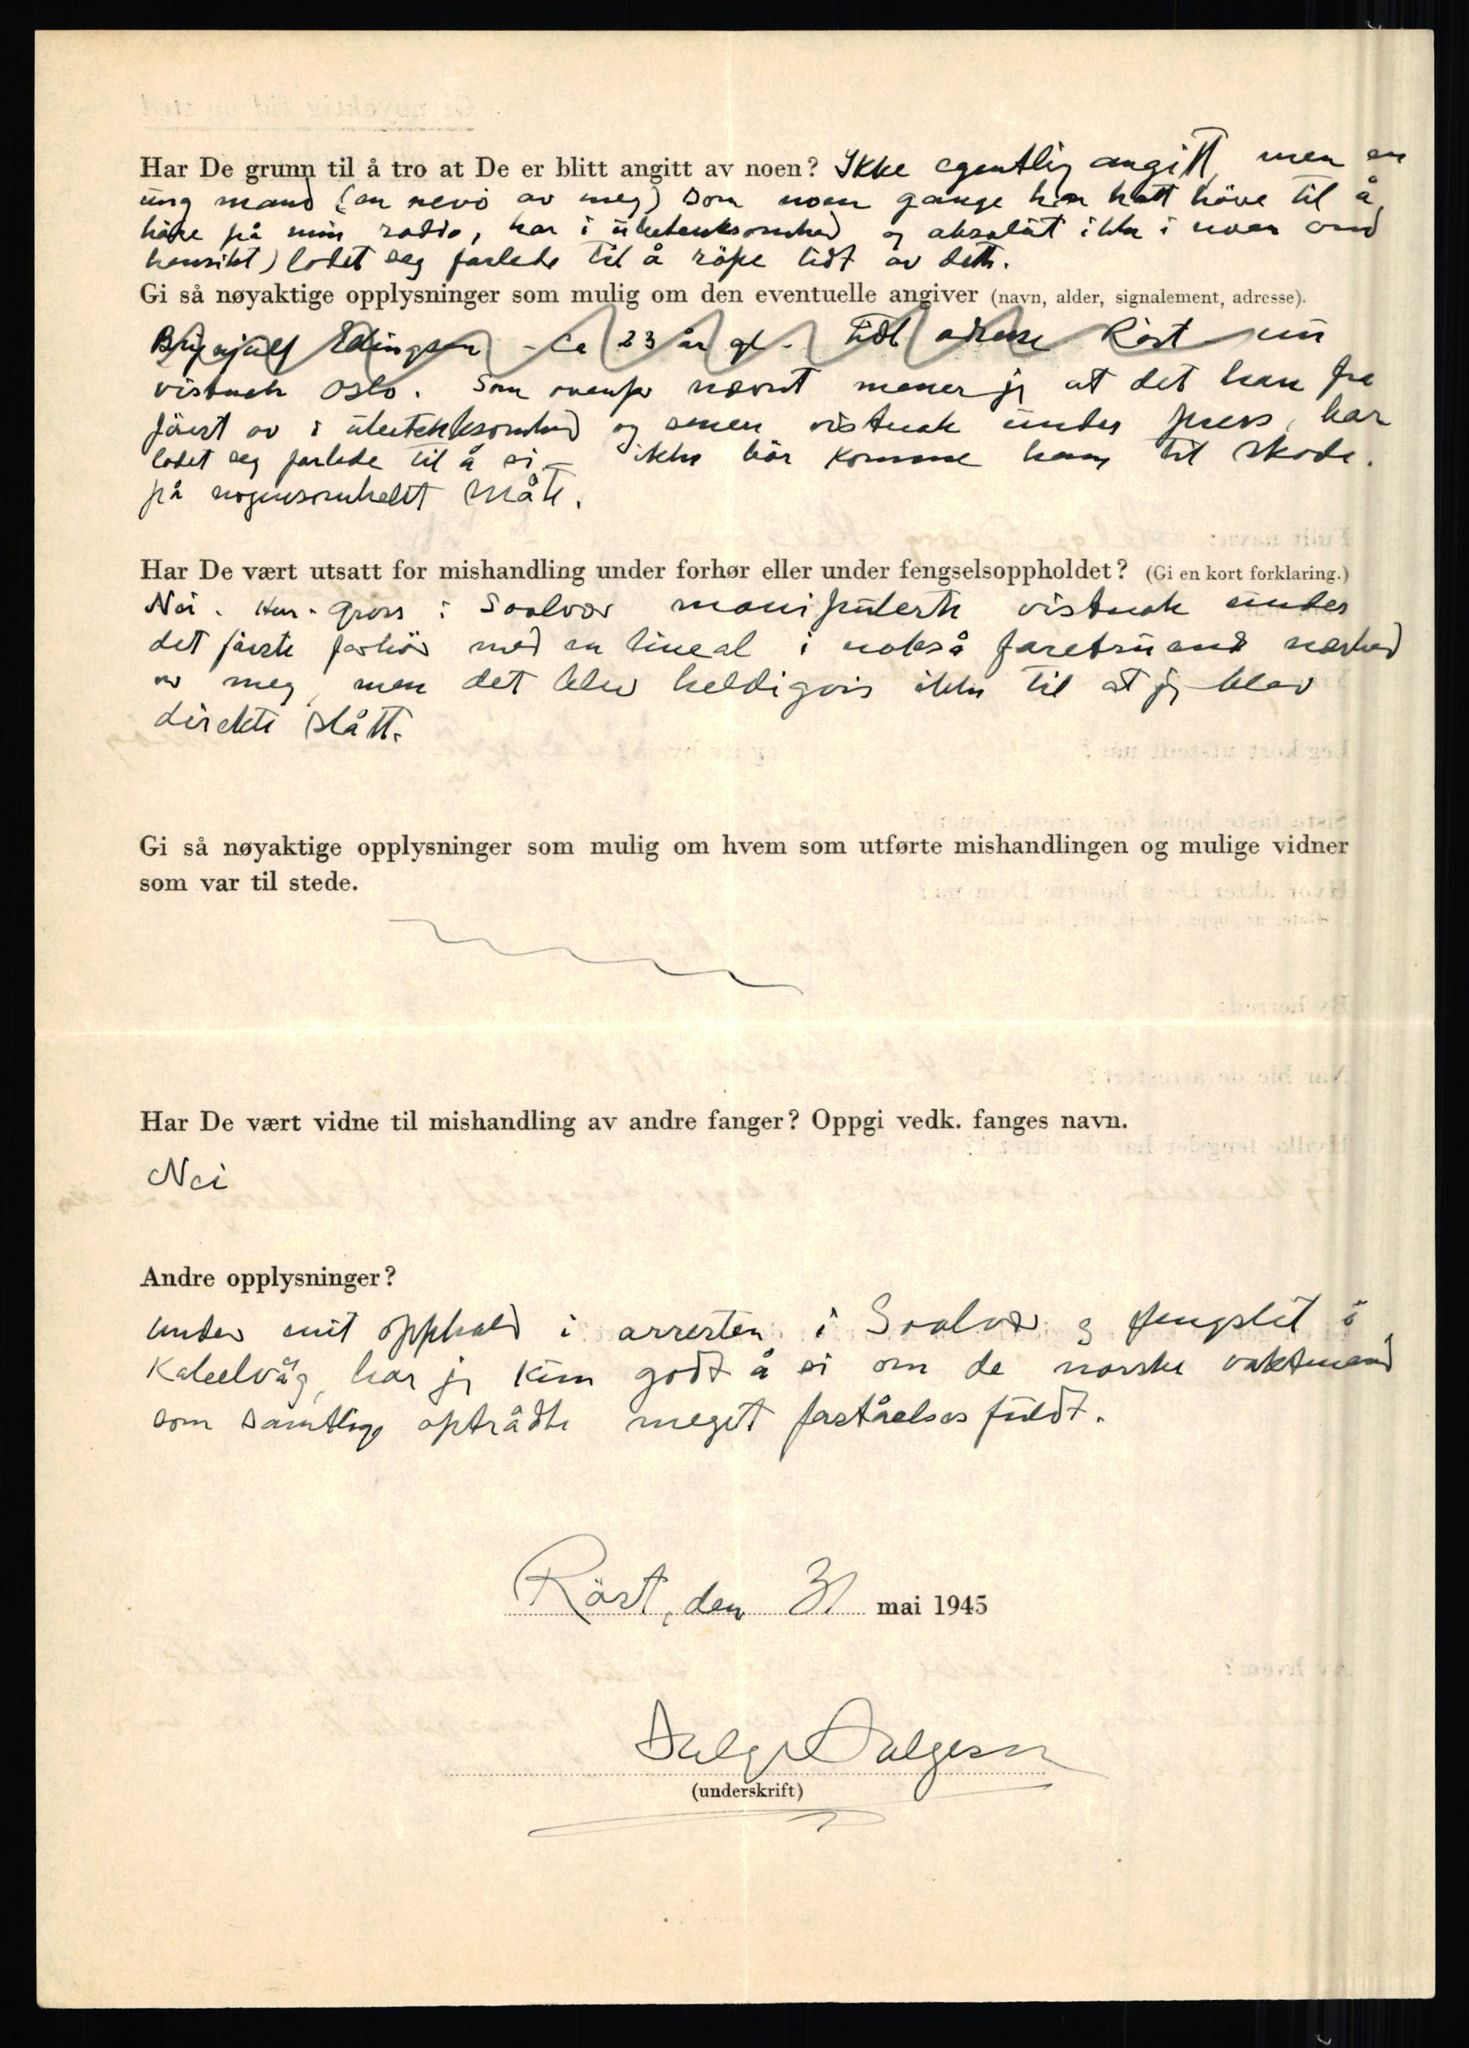 Har De grunn til å tro at De er blitt angitt av noen? Ikke egentlig angitt, men en
ung mand (en nevö av meg) som noen gange har hatt höve til å
höre på min radio, har i ubetenksomhed og absolut ikke i noen ond
hensikt) ladet seg forlede til å röpe lidt av dette.
Gi så nøyaktige opplysninger som mulig om den eventuelle angiver (navn, alder, signalement, adresse).
Brynjulf Edingsen - ca 23 år gl. - Tidl adresse Röst nu
vistnok Oslo. Som ovenfor nevnt mener jeg at det han fra
först av i ubetenksomhed og senere vistnok under press, har
ladet seg forlede til å si - ikke bör komme ham til skade
på nogensomhelst måte.
Har De vært utsatt for mishandling under forhør eller under fengselsoppholdet? (Gi en kort forklaring.)
Nei. Herr Gross i Svolvær manipulerte vistnok under
det förste forhör med en lineal i nokså faretruend nærhed
av meg, men det blev heldigvis ikke til at jeg blev
direkte slått.
Gi så nøyaktige opplysninger som mulig om hvem som utførte mishandlingen og mulige vidner
som var til stede.
Har De vært vidne til mishandling av andre fanger? Oppgi vedk. fanges navn.
Nei
Andre opplysninger?
Under mit opphold i arresten i Svolvær og fengslet i
Kabelvåg, har jeg kun godt å si om de norske vaktmend
som samtlige optrådte meget forståelsesfuldt.
Röst, den 31 mai 1945
Helge Helgesen
(underskrift)